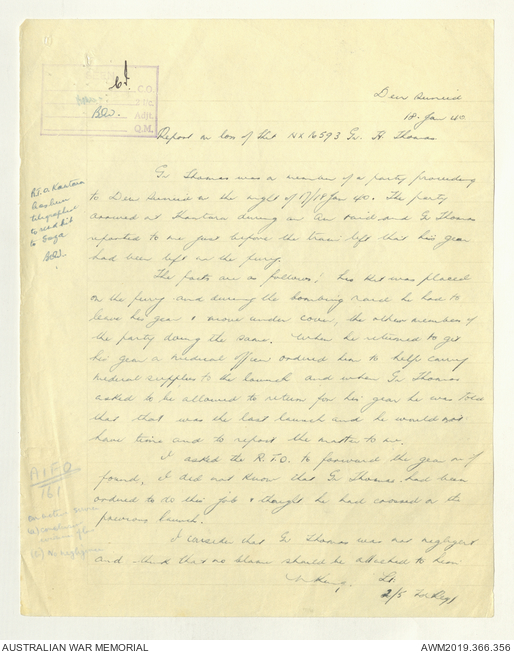 bf. C.O.
Adjt.
Q.M.
Deir Suneid
18 Jan 40.
Report on loss of Kit NX16593 Gr. H. Thomas
Gr Thomas was a member of a party proceeding
to Deir Suneid on the night of 17/18 Jan 40. The party
arrived at Kantara during an air raid and Gr Thomas
reported to me just before the train left that his gear
had been left on the ferry.
The facts are as follows: his kit was placed
on the ferry and during the bombing raid he had to
leave his gear & move under cover, the other members of
the party doing the same. When he returned to get
his gear a medical officer ordered him to help carry
medical supplies to the launch and when Gr Thomas
asked to be allowed to return for his gear he was told
that that was the last launch and he would not
have time and to report the matter to me.
I asked the R.T.O. to forward the gear if
found, I did not know that Gr Thomas had been
ordered to do this job & thought he had crossed on the
previous launch.
I consider that Gr Thomas was not negligent
and think that no blame should be attached to him
Lt.
2/5 Fd Regt
R.T.O Kantara
telegraphed
to send kit
to Gaza
AIFO
161
AUSTRALIAN WAR MEMORIAL
AWM2019.366.356